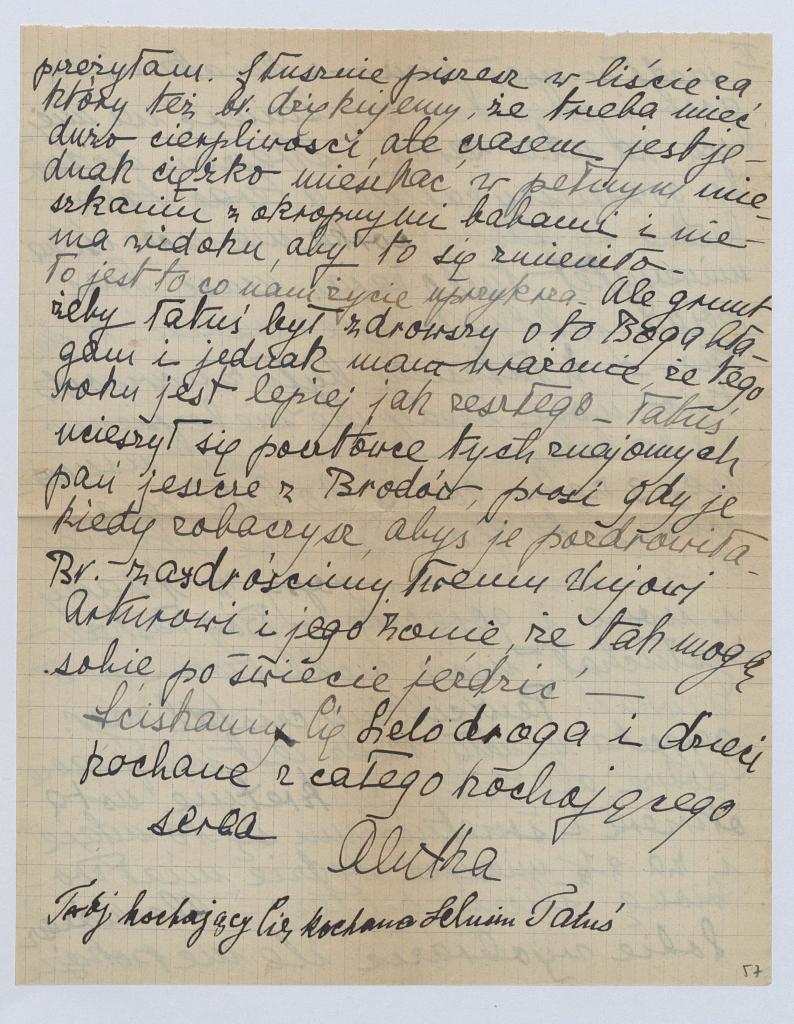 przeżyłam. Słusznie piszesz w liście za
który też br. dziękujemy, że trzeba mieć
dużo cierpliwości, ale czasem jest je-
dnak ciężko mieszkać w pełnym mie-
szkaniu z okropnymi babami i nie-
ma widoku, aby to się zmieniło-
To jest to co nam życie uprzykrza. Ale grunt
żeby Tatuś był zdrowszy o to Boga bła-
gam i jednak mam wrażenie, że tego
roku jest lepiej jak zeszłego - Tatuś
ucieszył się pocztówce tych znajomych
pań jeszcze z Brodów, prosi gdy je
kiedy zobaczysz, abyś je pozdrowiła-
Br. zazdrościmy Twemu Wujowi
Arturowi i jego żonie, że tak mogą
sobie po świecie jeździć —
Ściskamy Cię Lelo droga i dzieci
kochane z całego kochającego
serca
Twój kochający Cię kochana Tatuś
57